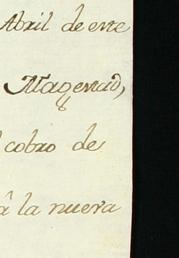 Abril de este
Magestad,
cobro de
â la nueva